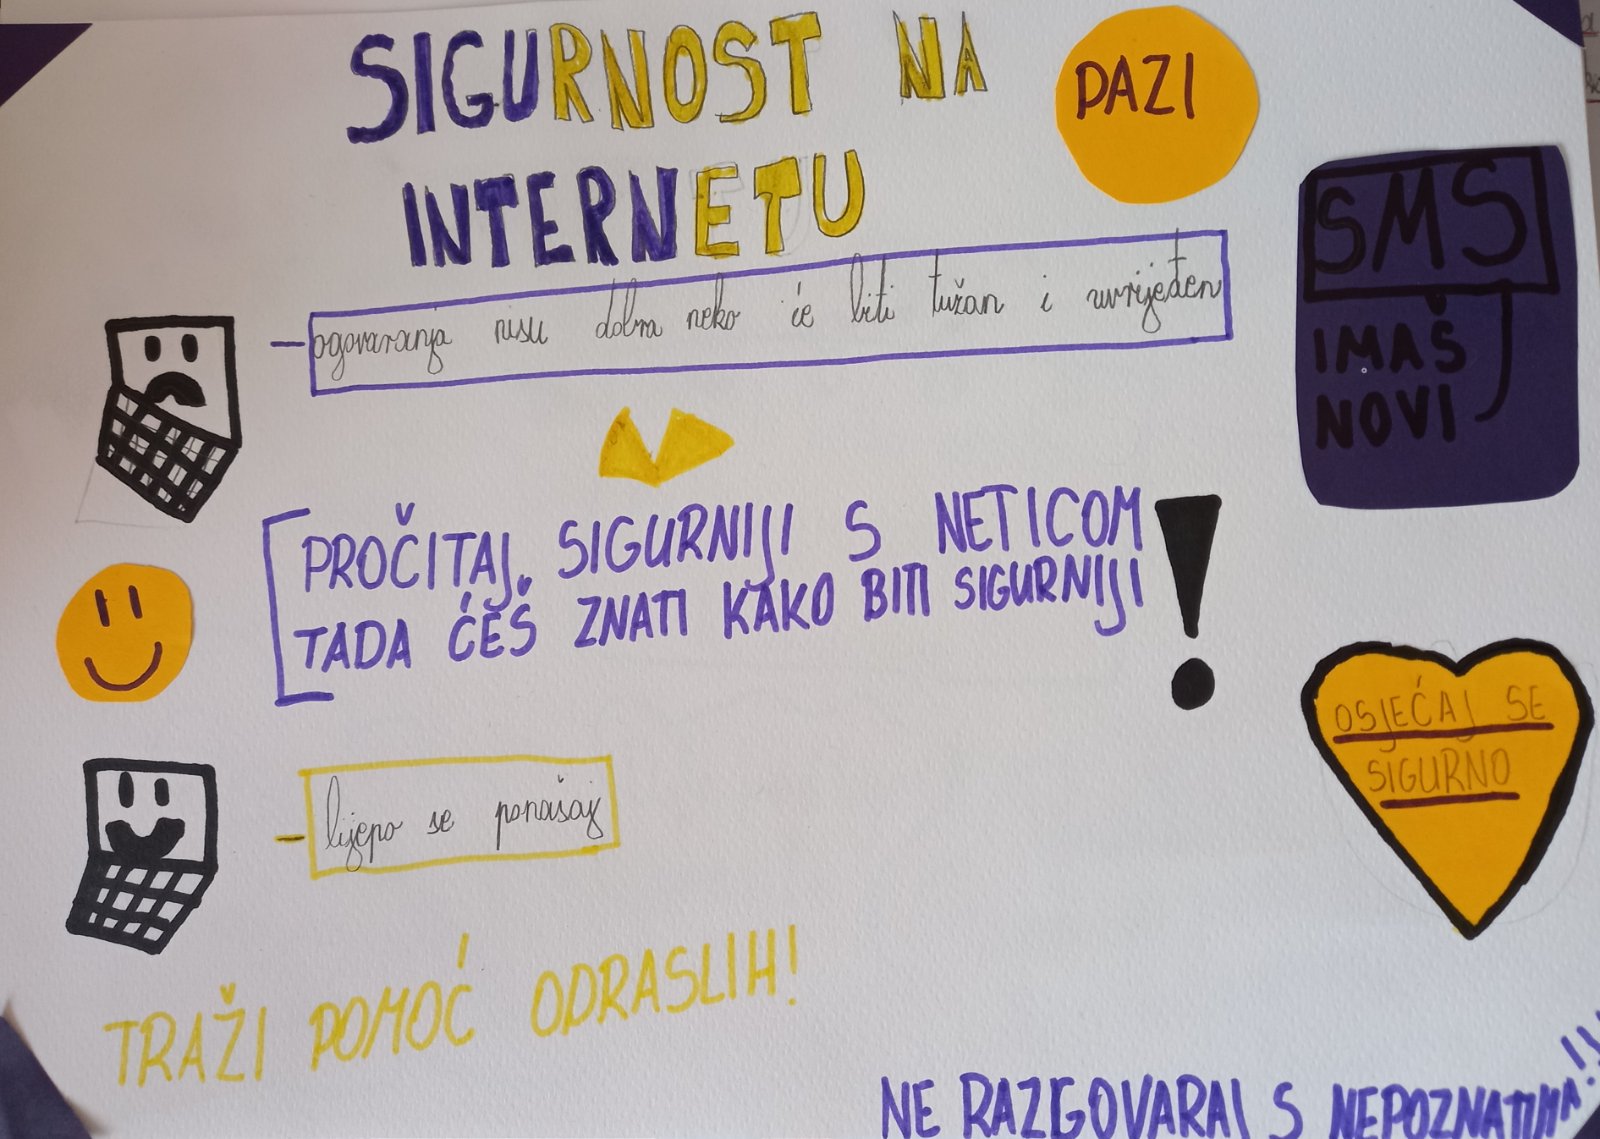 SIGURNOST NA
INTERNETU
PAZI
SMS
IMAŠ
NOVI
ogovaranja nisu dobra neko će biti tužan i uvrijeđen
PROČITAJ, SIGURNIJI S NETICOM
TADA ĆEŠ ZNATI KAKO BITI SIGURNIJI!
OSJEĆAJ SE
SIGURNO
lijepo se ponašaj
TRAŽI POMOĆ ODRASLIH!
NE RAZGOVARAJ S NEPOZNATIMA!!